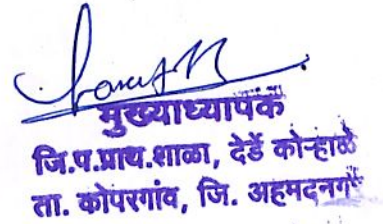 मुख्याध्यापक
जि.प.प्राथ.शाळा, देर्डे कोऱ्हाळे
ता. कोपरगांव, जि. अहमदनगर